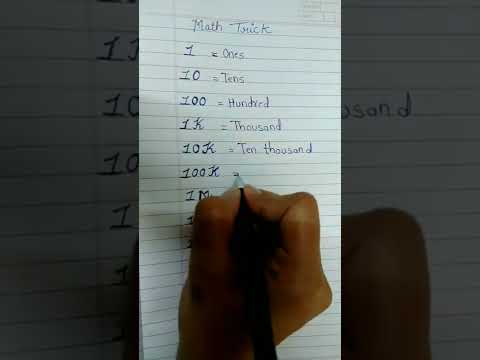 Math Trick
1 = Ones
10 = Tens
100 = Hundred
1K = Thousand
10K = Ten thousand
100K =
1M